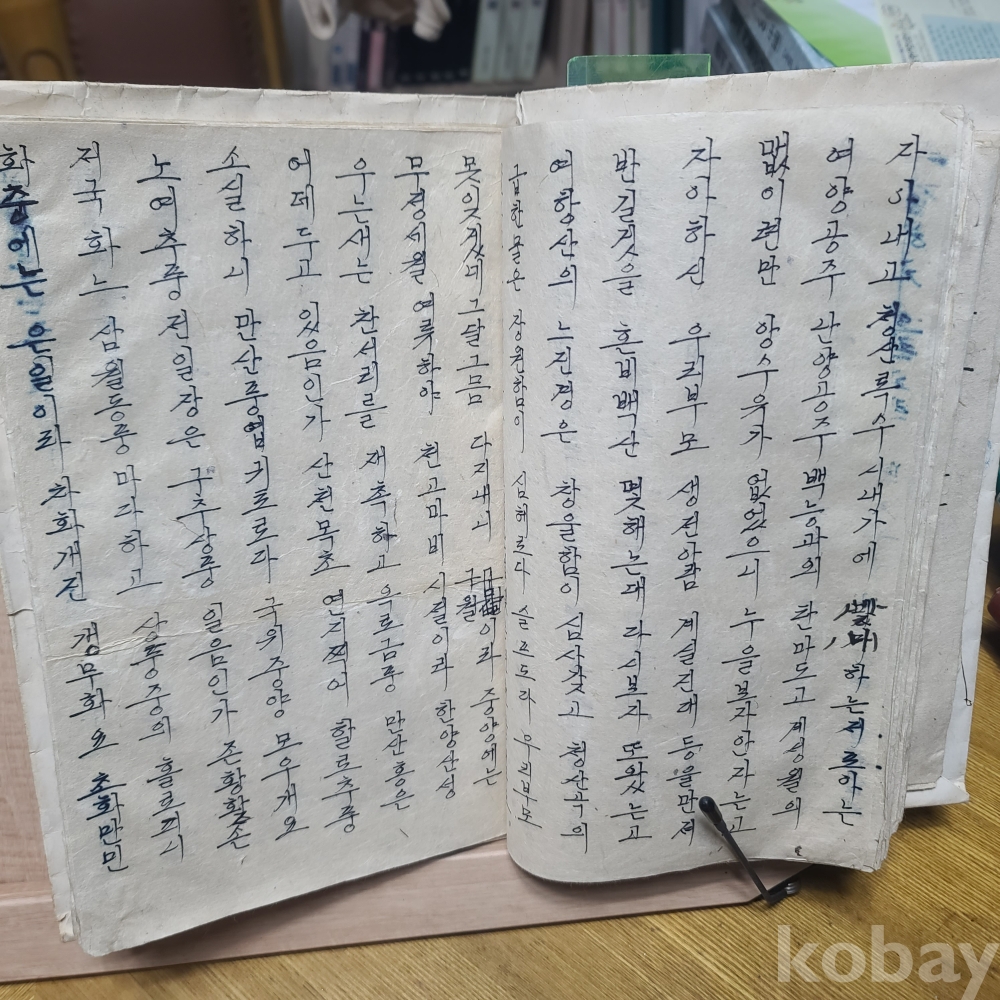 자아내고 청산류수 시내가에 빨내하는 저르아는
여양공주 난양공주 백능과의 찬마도고 계성월의
맵이련만 앙수유가 없었으니 누을보자 안자는고
자아하신 우리부모 생전아람 계실진대 등을만저
반길것을 흔비백산 몇해는대 다시보자 또왔는고
여항산의 느진경은 창울함이 심사갖고 청산곡의
급한물은 장원하함이 심혜르다 슬프도다 우리부모
못잇지겠네 그달그믐 다지내니 구월이라 중양에는
무정세월 여류하야 천고마비 시절이라 한양산성
우는새는 찬서리를 재촉하고 옥로금풍 만산홍은
어데두고 있음인가 산천목초 연지찍어 할로추풍
소실하니 만산풍엽 키로로다 국위중양 모우개요
노여추풍 전일장은 구추상풍 일음인가 존황황손
저국화느 삼월동풍 마다하고 상풍중의 홀로피니
화중에는 은일이라 차화개진 갱무화요 초화만민
kobay